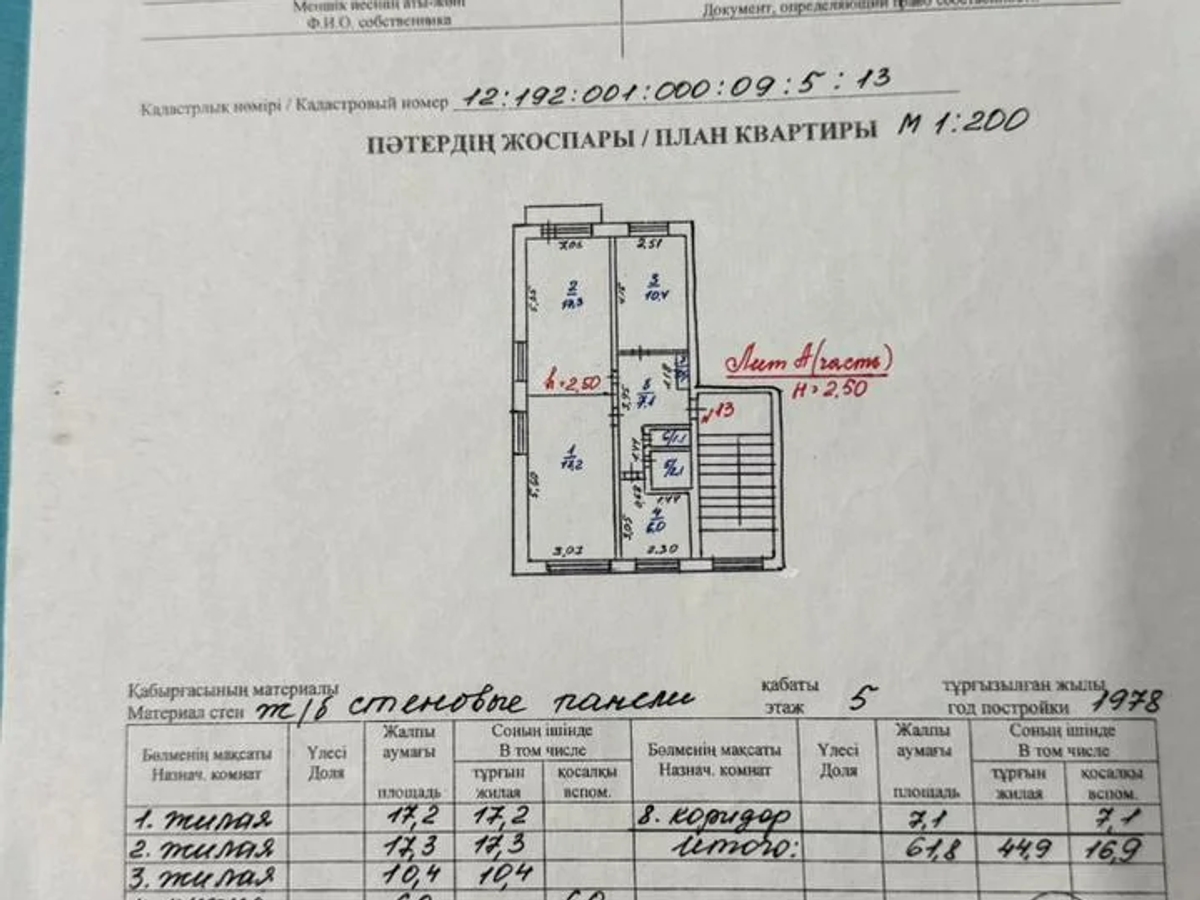 Меншік иесінің аты-жөні
Ф.И.О. собственника
Документ, определяющий право собственности
Кадастрлық нөмірі / Кадастровый номер 12:192:001:000:09:5:13
ПӘТЕРДІҢ ЖОСПАРЫ / ПЛАН КВАРТИРЫ М 1:200
2,51
2
17,3
3
10,4
Лит А (часть)
H=2,50
h=2,50
8
7,1
3,95
N13
6/1,1
1,44
1
17,2
5/2,1
5,60
0,68
1,44
4
6,0
3,05
2,30
Қабырғасының материалы
Материал стен ж/б стеновые панели
қабаты
этаж 5
тұрғызылған жылы
год постройки 1978
Бөлменің мақсаты
Назнач. комнат
Үлесі
Доля
Жалпы
аумағы
площадь
Соның ішінде
В том числе
тұрғын
жилая
қосалқы
вспом.
Бөлменің мақсаты
Назнач. комнат
Үлесі
Доля
Жалпы
аумағы
площадь
Соның ішінде
В том числе
тұрғын
жилая
қосалқы
вспом.
1. жилая 17,2 17,2 8. коридор 7,1 7,1
2. жилая 17,3 17,3 Итого: 61,8 44,9 16,9
3. жилая 10,4 10,4